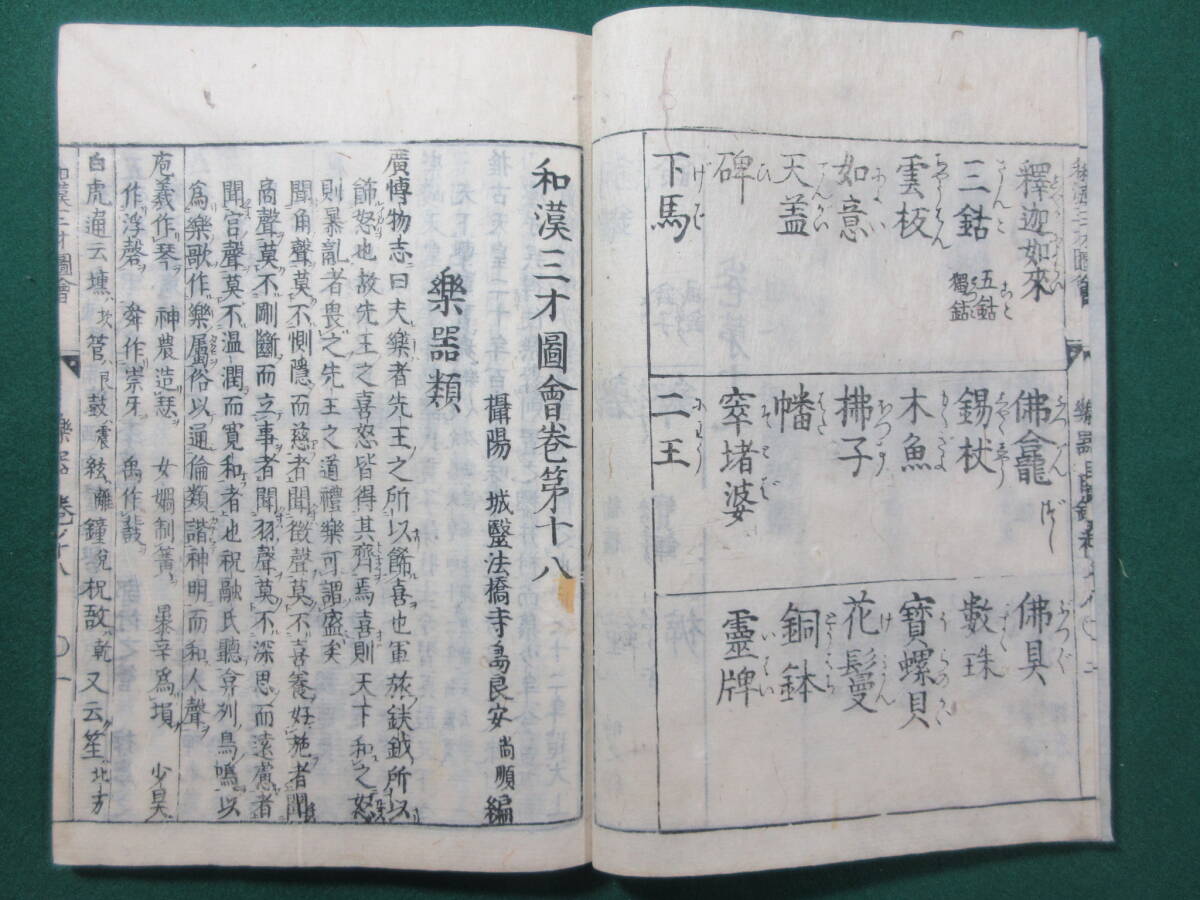 釋迦如來
三鈷 五鈷 獨鈷
雲板
如意
天盖
碑
下馬
佛龕
錫杖
木魚
拂子
幡
窣堵婆
二王
佛具
數珠
寶螺貝
花鬘
銅鉢
靈牌
和漢三才圖會卷第十八
攝陽 城醫法橋寺島良安尚順編
樂器類
廣博物志曰夫樂者先王之所以餙喜也軍旅鈇鉞所以
餙怒也故先王之喜怒皆得其齊焉喜則天下和之怒
則暴亂者畏之先王之道禮樂可謂盛矣
聞角聲莫不惻隱而慈者聞徵聲莫不喜養好施者聞
商聲莫不剛斷而立事者聞羽聲莫不深思而遠慮者
聞宮聲莫不温潤而寬和者也祝融氏聽弇州鳥鳴以
爲樂歌作樂屬俗以通倫類諧神明而和人聲
庖羲作琴 神農造瑟 女媧制簧 暴辛爲塤 少昊
作浮磬 舜作崇牙 禹作鼓
白虎通云壎坎管艮鼓震絃離鐘兌柷敔乾又云笙北方